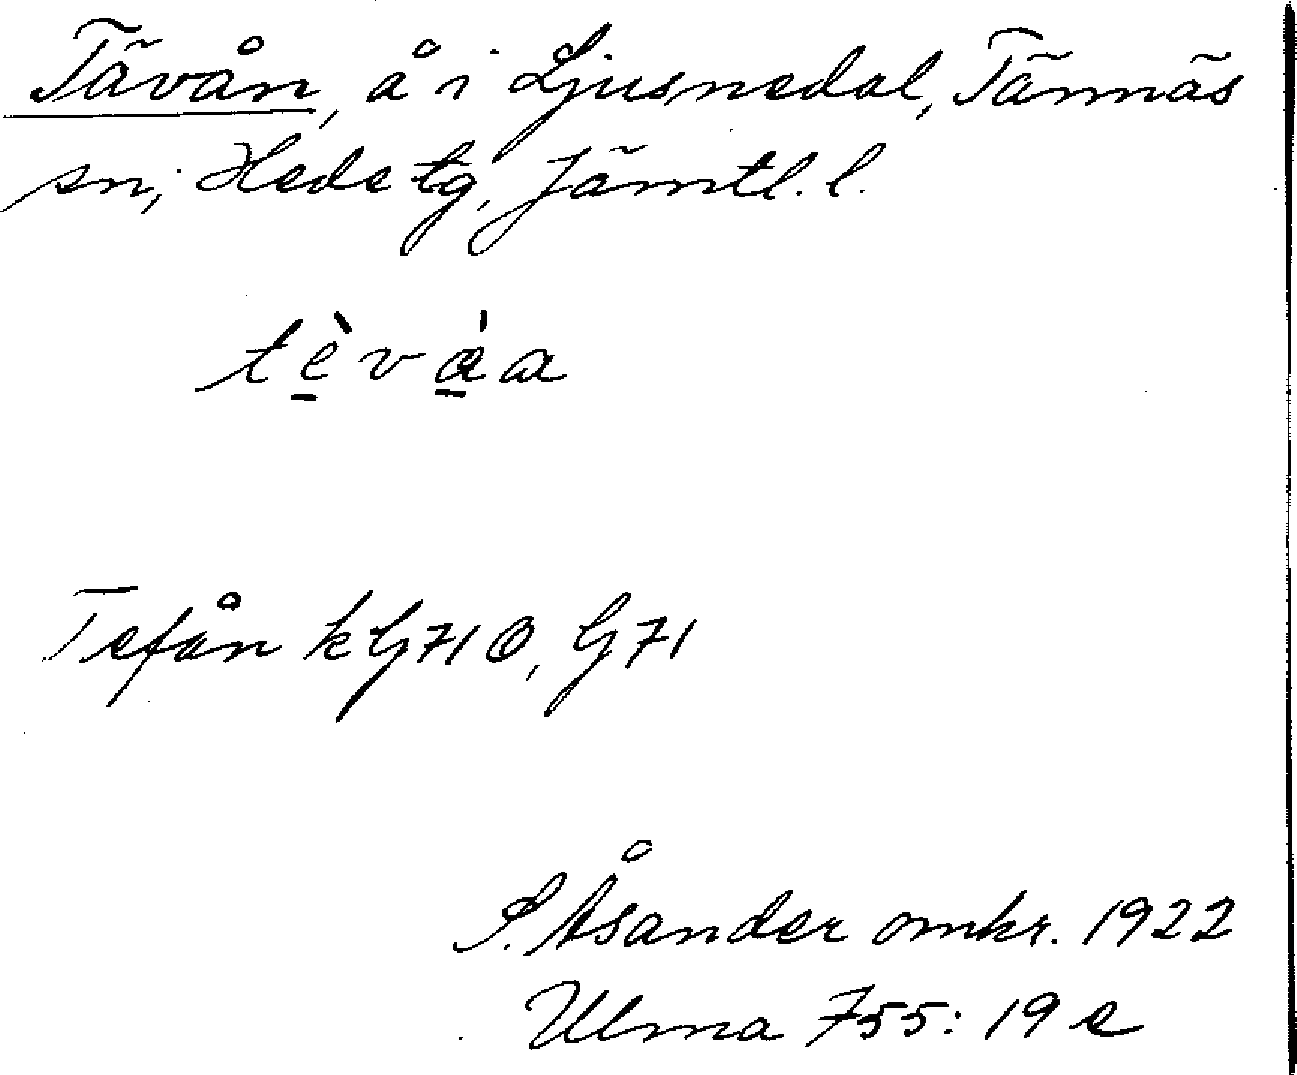 Tävån, å i Ljusnedal, Tännäs
sn, Hede tg, Jämtl. l.
tèvàa
Tefån k G71Ö, G71
S. Åsander omkr. 1922
Ulma 755: 19 e